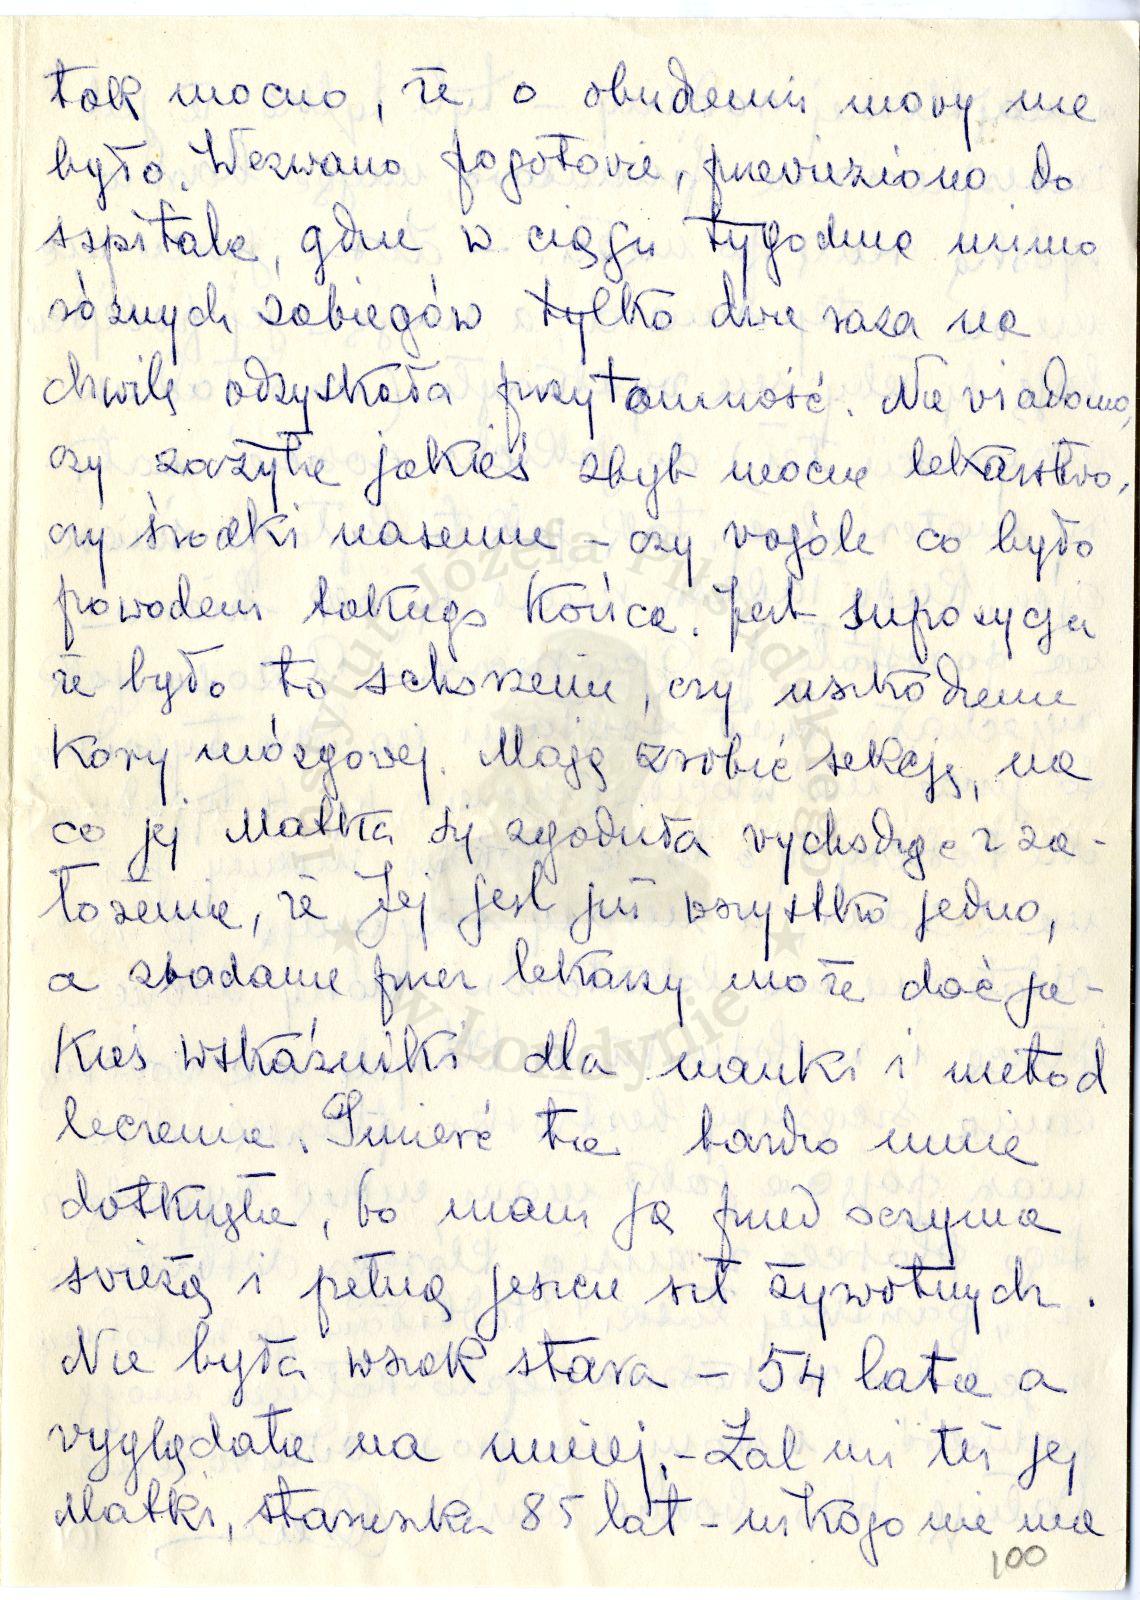 tak mocno, że o obudzeniu mowy nie
było. Wezwano pogotowie, przewieziono do
szpitala, gdzie w ciągu tygodnia mimo
różnych zabiegów tylko dwa razy na
chwilę odzyskała przytomność. Nie wiadomo,
czy zażyła jakieś zbyt mocne lekarstwo,
czy środki nasenne – czy wogóle co było
powodem takiego końca. Jest supozycja
że było to schorzenie, czy uszkodzenie
Kory mózgowej. Mają zrobić sekcję, na
co jej Matka się zgodziła wychodząc z za-
łożenia, że Jej jest już wszystko jedno,
a zbadanie przez lekarzy może dać ja-
kieś wskaźniki dla nauki i metod
leczenia. Śmierć ta bardzo mnie
dotknęła, bo mam ją przed oczyma
świeżą i pełną jeszcze sił żywotnych.
Nie była wszak stara – 54 lata a
wyglądała na mniej. – Żal mi też jej
Matki, staruszka 85 lat – nikogo nie ma
100
Instytut Józefa Piłsudskiego
w Londynie